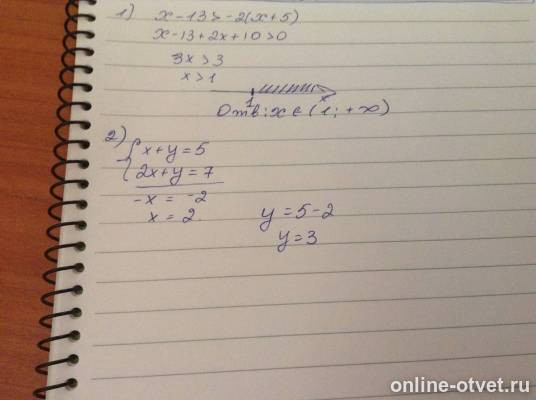 1) x-13>-2(x+5)
x-13+2x+10>0
3x>3
x>1
1 x
Отв: x∈(1; +∞)
2) { x+y=5
2x+y=7
-x = -2
x = 2
y=5-2
y=3
online-otvet.ru